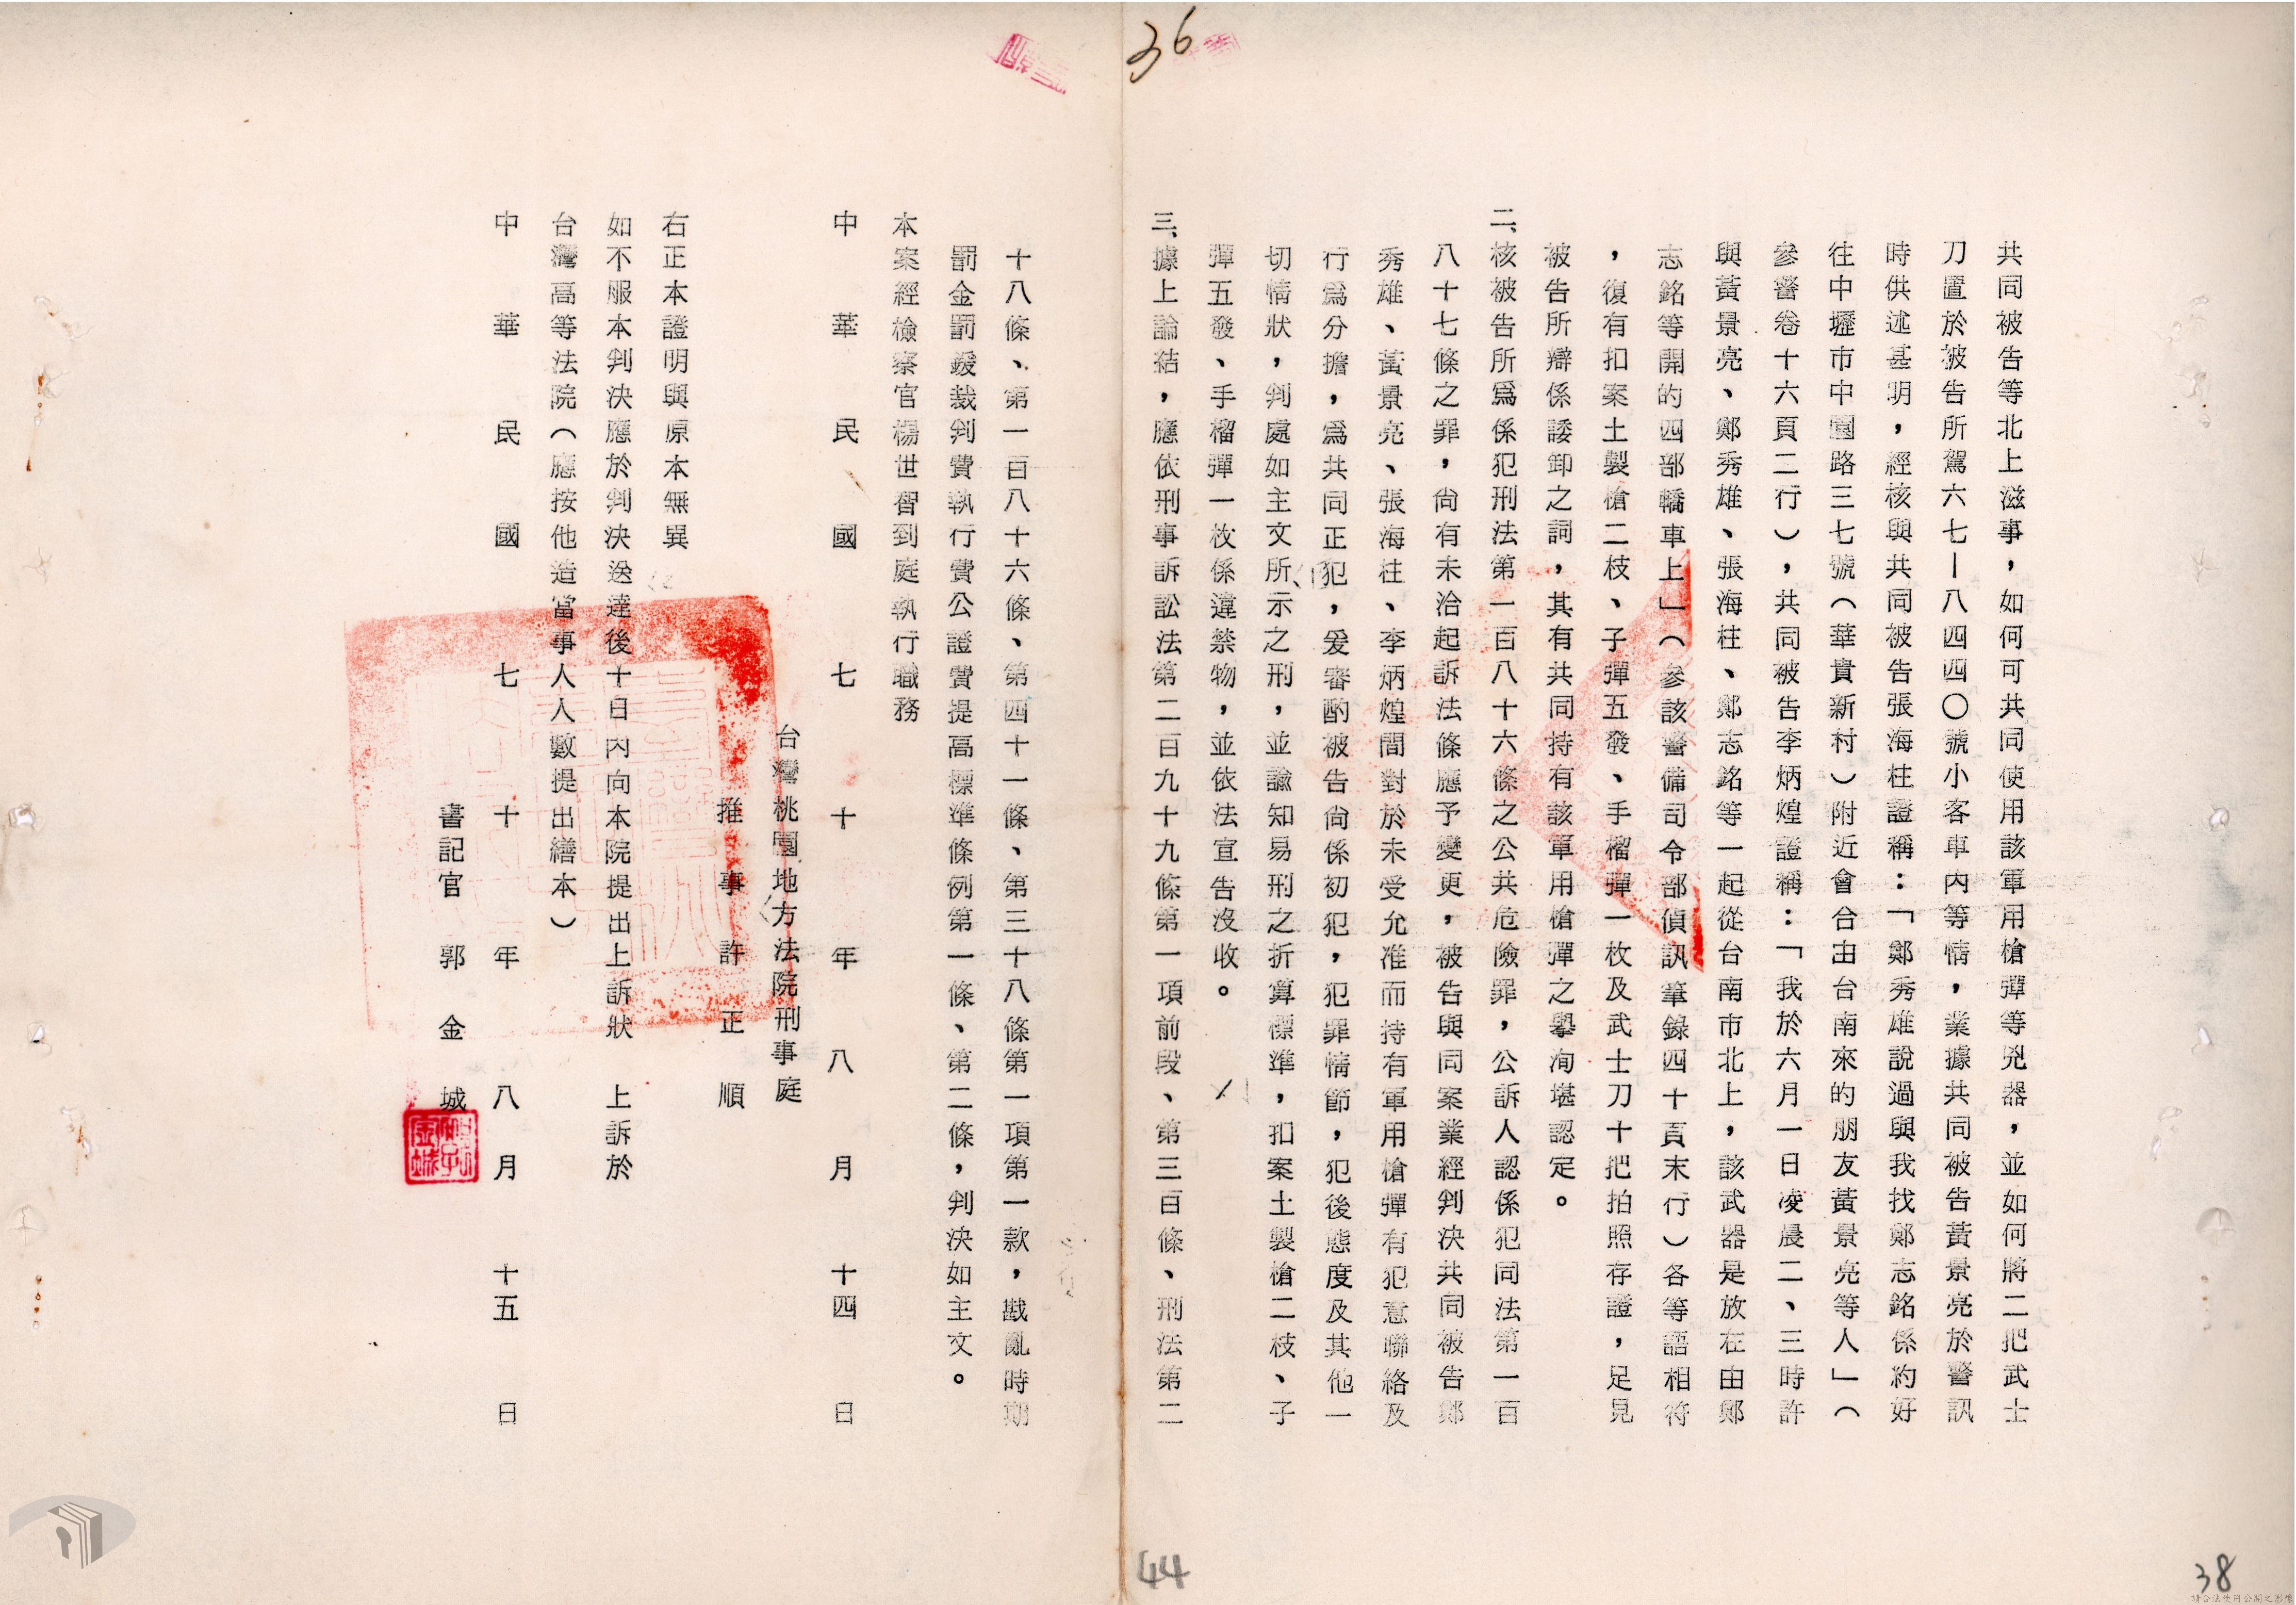 36
共同被告等北上滋事，如何可共同使用該軍用槍彈等兇器，並如何將二把武士
刀置於被告所駕六七—八四四〇號小客車內等情，業據共同被告黃景亮於警訊
時供述甚明，經核與共同被告張海柱證稱：「鄭秀雄說過與我找鄭志銘係約好
往中壢市中園路三七號（華貴新村）附近會合由台南來的朋友黃景亮等人」（
參警卷十六頁二行），共同被告李炳煌證稱：「我於六月一日凌晨二、三時許
與黃景亮、鄭秀雄、張海柱、鄭志銘等一起從台南市北上，該武器是放在由鄭
志銘等開的四部轎車上」（參該警備司令部偵訊筆錄四十頁末行）各等語相符
，復有扣案土製槍二枝、子彈五發、手榴彈一枚及武士刀十把拍照存證，足見
被告所辯係諉卸之詞，其有共同持有該軍用槍彈之舉洵堪認定。
二、核被告所為係犯刑法第一百八十六條之公共危險罪，公訴人認係犯同法第一百
八十七條之罪，尚有未洽起訴法條應予變更，被告與同案業經判決共同被告鄭
秀雄、黃景亮、張海柱、李炳煌間對於未受允准而持有軍用槍彈有犯意聯絡及
行為分擔，為共同正犯，爰審酌被告尚係初犯，犯罪情節，犯後態度及其他一
切情狀，判處如主文所示之刑，並諭知易刑之折算標準，扣案土製槍二枝、子
彈五發、手榴彈一枚係違禁物，並依法宣告沒收。
三、據上論結，應依刑事訴訟法第二百九十九條第一項前段、第三百條、刑法第二
十八條、第一百八十六條、第四十一條、第三十八條第一項第一款，戡亂時期
罰金罰鍰裁判費執行費公證費提高標準條例第一條、第二條，判決如主文。
本案經檢察官楊世智到庭執行職務
中華民國七十年八月十四日
台灣桃園地方法院刑事庭
推事 許正順
右正本證明與原本無異
如不服本判決應於判決送達後十日內向本院提出上訴狀 上訴於
台灣高等法院（應按他造當事人人數提出繕本）
中華民國七十年八月十五日
書記官 郭金城
44
38
請合法使用公開之影像